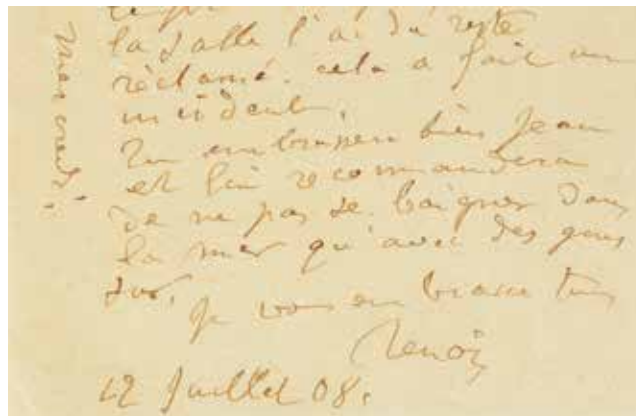 la salle l'a du reste
réclamé. cela a fait un
incident.
Tu embrassera bien Jean
et lui recommandera
de ne pas se baigner dans
la mer qu'avec des gens
sur.
Je vous embrasse tous
Renoir
12 Juillet 08.